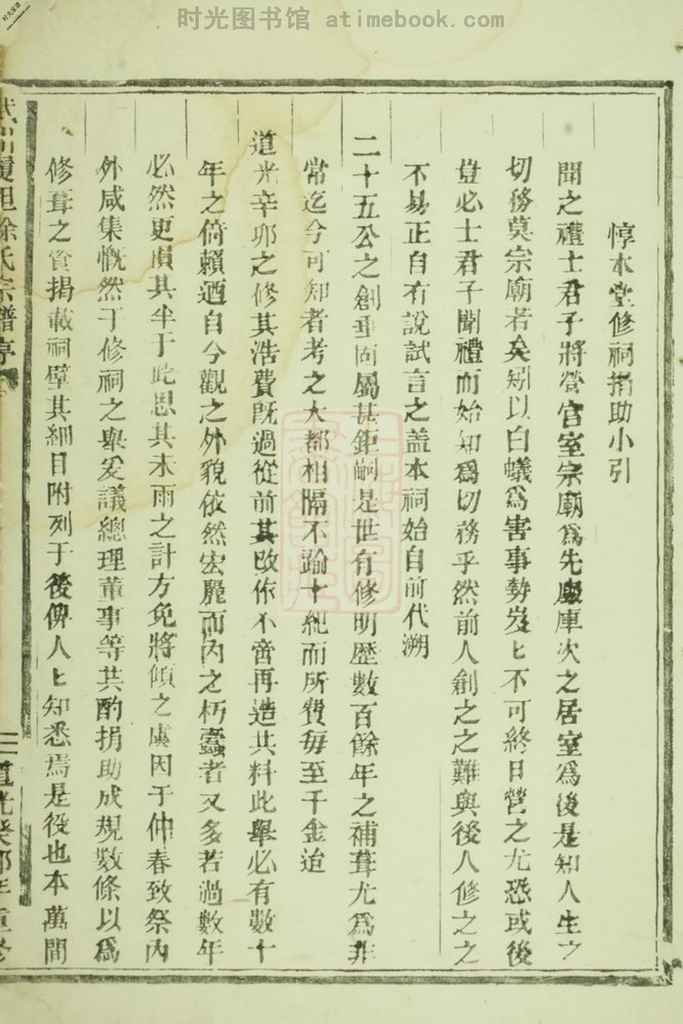 时光图书馆 atimebook.com
惇本堂修祠捐助小引
聞之禮士君子將營宫室宗廟爲先廐庫次之居室爲後是知人生之
切務莫宗廟若矣矧以白蟻爲害事勢岌匕不可終日營之尤恐或後
豈必士君子聞禮而始知爲切務乎然前人創之之難與後人修之之
不易正自有說試言之盖本祠始自前代溯
二十五公之創垂固屬甚鉅嗣是世有修明歷數百餘年之補葺尤爲非
常迄今可知者考之大都相隔不踰十紀而所費每至千金迨
道光辛卯之修其浩費既過從前其改作不啻再造共料此舉必有數十
年之倚賴迺自今觀之外貌依然宏麗而內之朽蠹者又多若過數年
必然更甚其半于此思其未雨之計方免將傾之虞因于仲春致祭內
外咸集慨然于修祠之舉爰議總理董事等共酌捐助成規數條以爲
修葺之資揭載祠壁其細目附列于後俾人匕知悉焉是役也本萬間
徐氏宗譜
道光癸卯年重修